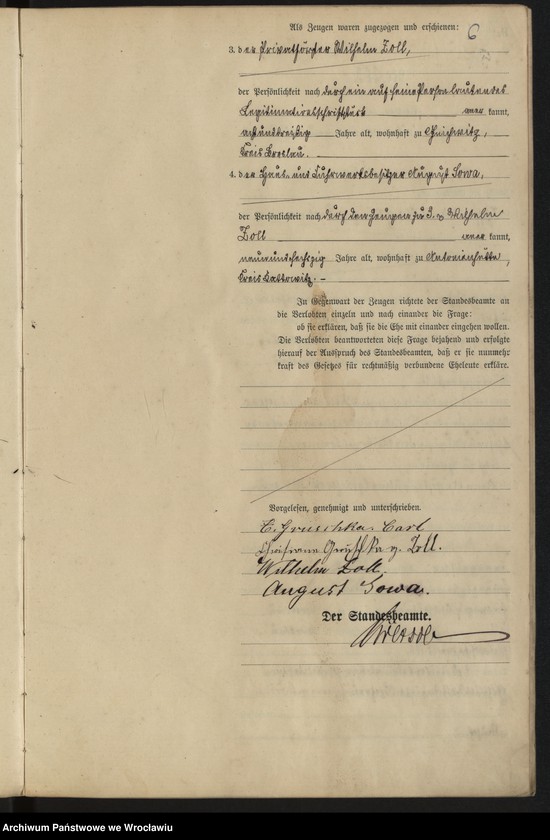 Als Zeugen waren zugezogen und erschienen:
6
3. der Privatförster Wilhelm Zoll,
der Persönlichkeit nach durch ein auf seine Person lautendes
Legitimationsschriftstück anerkannt,
achtunddreißig Jahre alt, wohnhaft zu
Kreis Breslau.
4. der Haus- und Fuhrwerksbesitzer August Sowa,
der Persönlichkeit nach durch den Zeugen zu 3. Wilhelm
Zoll anerkannt,
neunundsechszig Jahre alt, wohnhaft zu Antonienhütte,
Kreis Kattowitz. –
In Gegenwart der Zeugen richtete der Standesbeamte an
die Verlobten einzeln und nach einander die Frage:
ob sie erklären, daß sie die Ehe mit einander eingehen wollen.
Die Verlobten beantworteten diese Frage bejahend und erfolgte
hierauf der Ausspruch des Standesbeamten, daß er sie nunmehr
kraft des Gesetzes für rechtmäßig verbundene Eheleute erkläre.
Vorgelesen, genehmigt und unterschrieben.
Gruschka Carl
g. Zoll.
Wilhelm Zoll.
August Sowa.
Der Standesbeamte.
Archiwum Państwowe we Wrocławiu